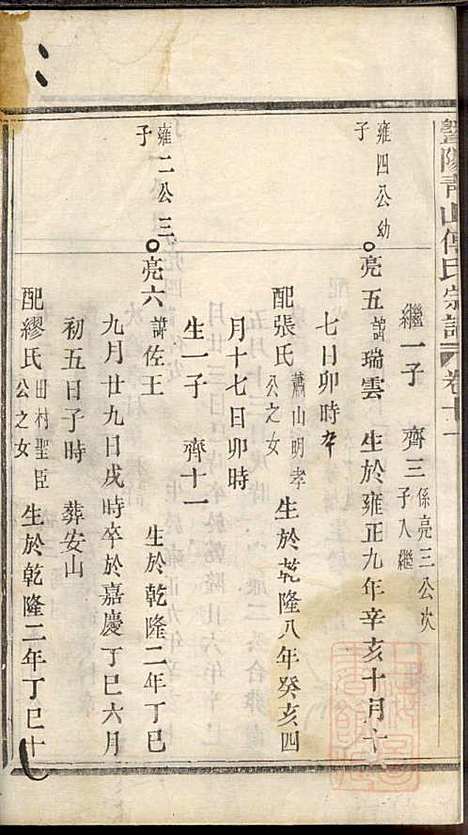 暨陽青山傅氏宗譜 卷十一
繼一子 齊三 係亮三公次子入繼
雍四公幼子
亮五 諱瑞雲 生於雍正九年辛亥十月十
七日卯時卒
配張氏 蕭山明孝公之女 生於乾隆八年癸亥四
月十七日卯時
生一子 齊十一
雍二公三子
亮六 諱佐王 生於乾隆二年丁巳
九月廿九日戌時卒於嘉慶丁巳六月
初五日子時 葬安山
配繆氏 田村聖臣公之女 生於乾隆二年丁巳十